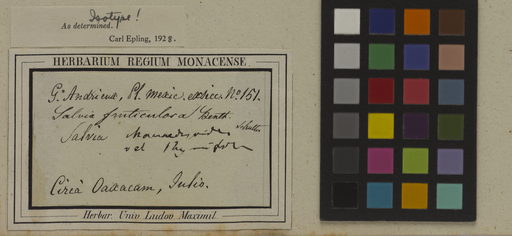 Isotype!
As determined.
Carl Epling, 1928.
HERBARIUM REGIUM MONACENSE.
G. Andrieux, Pl. mexic. exsicc. No. 151.
Salvia fruticulosa Benth.
Salvia
vel
Circa Oaxacam, Julio.
Herbar. Univ. Ludov. Maximil.